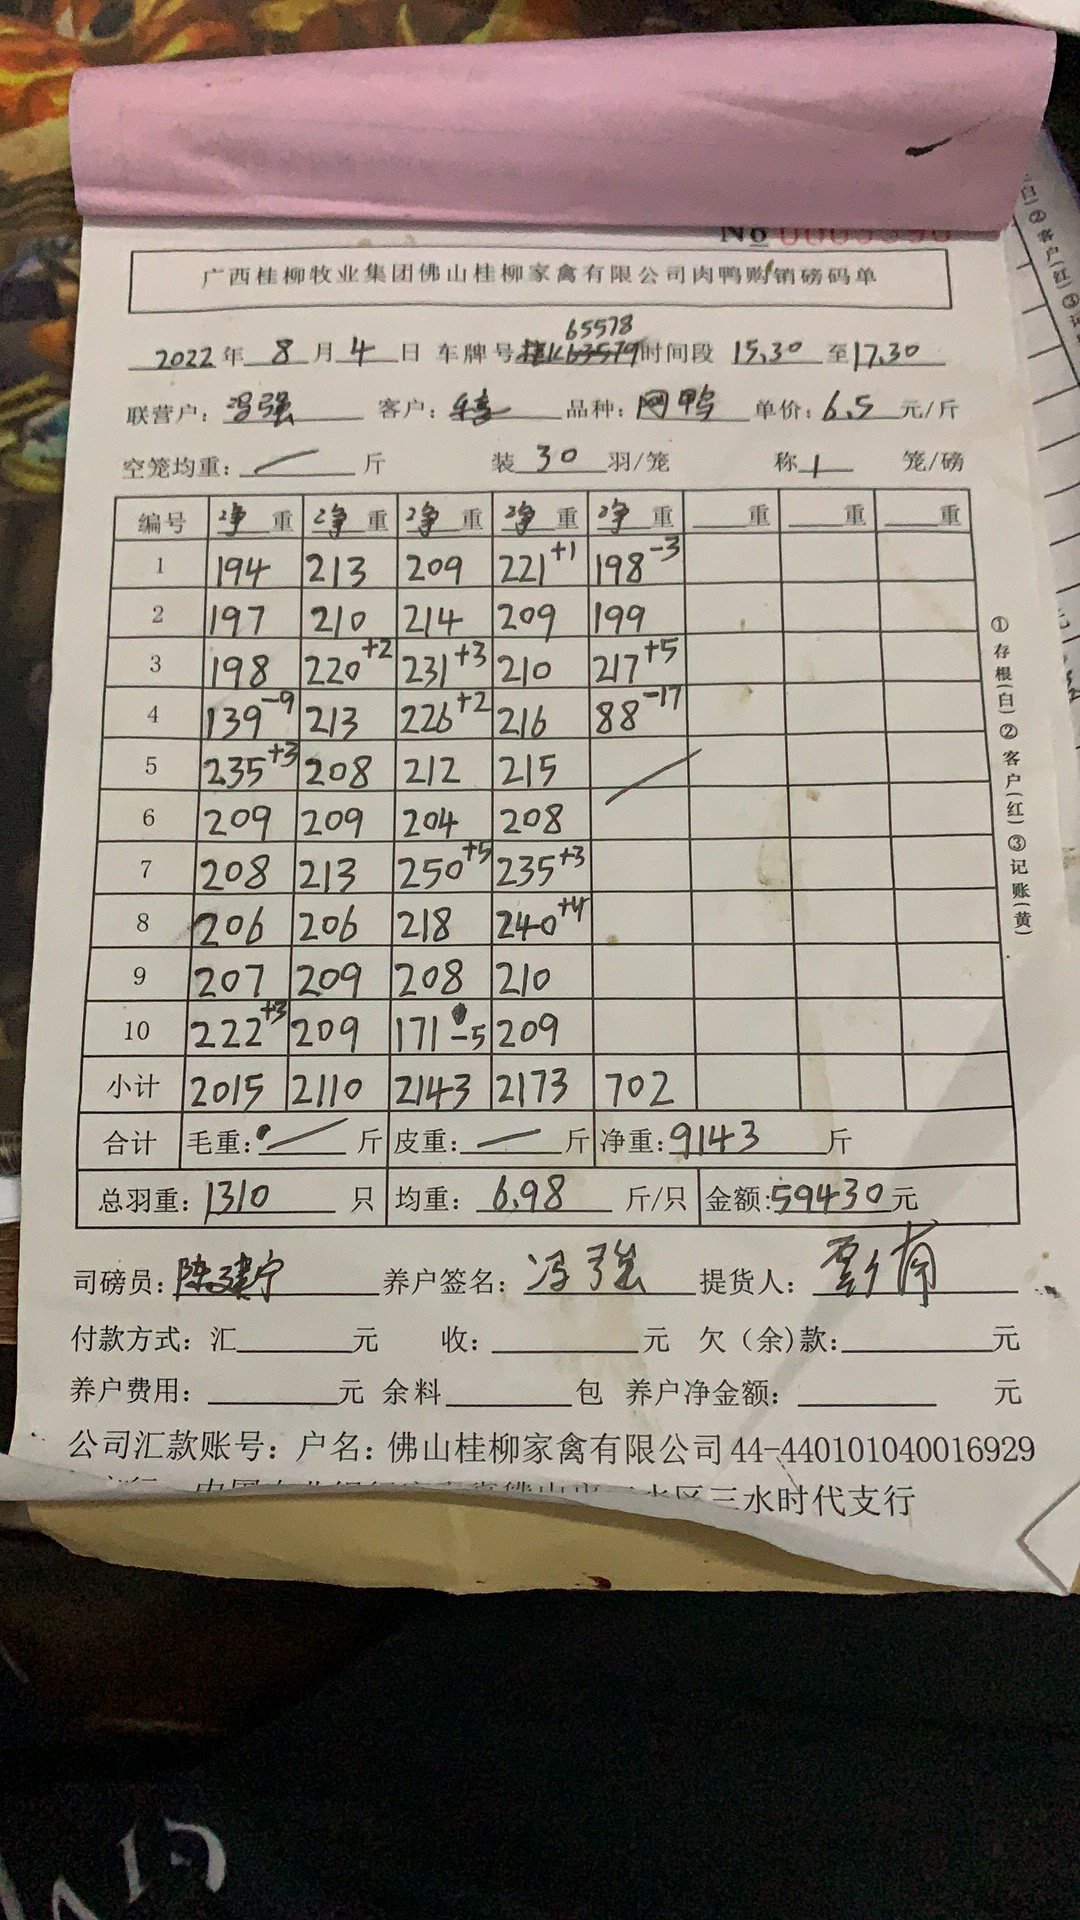 No 0005390
广西桂柳牧业集团佛山桂柳家禽有限公司肉鸭购销磅码单
65578
2022年 8月4日 车牌号 时间段 15.30 至17.30
联营户: 冯强 客户: 品种: 网鸭 单价: 6.5 元/斤
空笼均重: — 斤 装 30 羽/笼 称 1 笼/磅
编号 净重 净重 净重 净重 净重 重 重 重
1 194 213 209 221+1 198-3
2 197 210 214 209 199
3 198 220+2 231+3 210 217+5
4 139-9 213 226+2 216 88-17
5 235+3 208 212 215
6 209 209 204 208
7 208 213 250+5 235+3
8 206 206 218 240+4
9 207 209 208 210
10 222+3 209 171-5 209
小计 2015 2110 2143 2173 702
合计 毛重: — 斤 皮重: — 斤 净重: 9143 斤
总羽重: 1310 只 均重: 6.98 斤/只 金额: 59430元
司磅员: 陈建宁 养户签名: 冯强 提货人:
付款方式: 汇 元 收: 元 欠(余)款: 元
养户费用: 元 余料 包 养户净金额: 元
公司汇款账号: 户名: 佛山桂柳家禽有限公司 44-440101040016929
三水时代支行
①存根(白)②客户(红)③记账(黄)